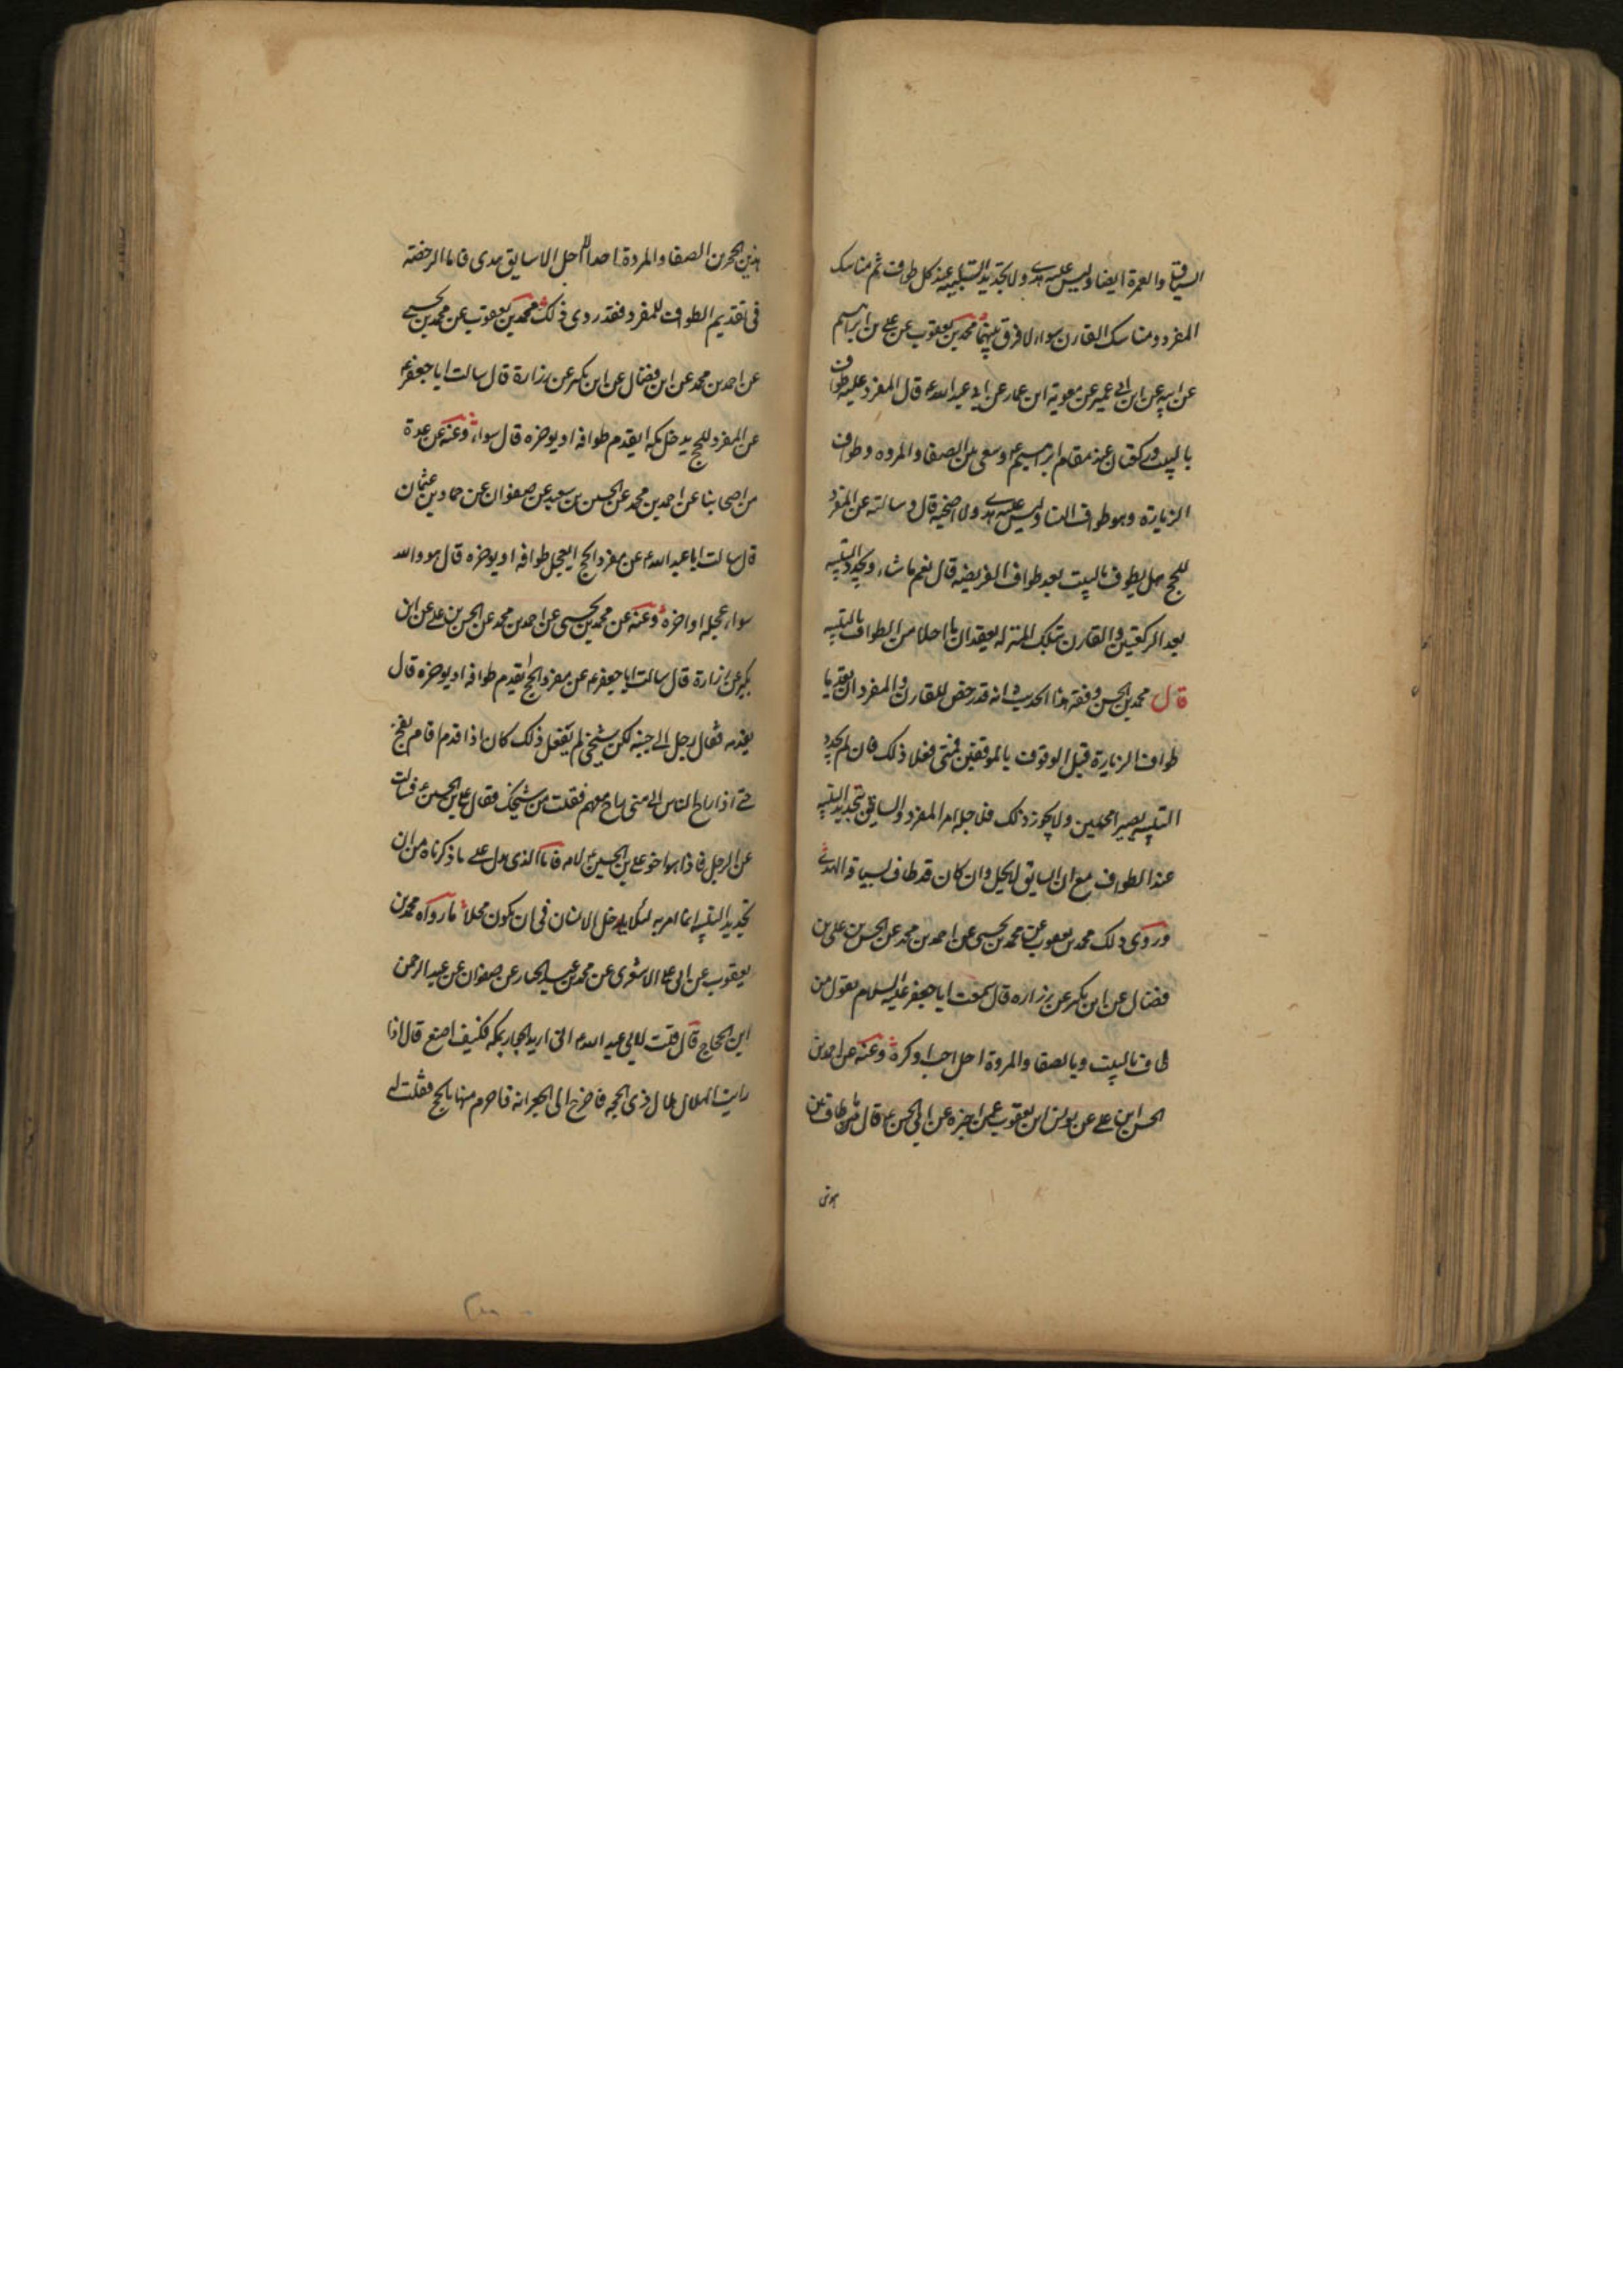 السياق والعمرة ايضا وليس عليه هدي ولا تجديد التلبية عند كل طواف ثم مناسك
المفرد ومناسك القارن سواء لا فرق بينهما محمد بن يعقوب عن علي بن ابراهيم
عن ابيه عن ابن ابي عمير عن معوية ابن عمار عن ابي عبد الله ع قال المفرد عليه طواف
بالبيت وركعتان عند مقام ابرهيم ع وسعى بين الصفا والمروه وطواف
الزيارة وهو طواف النساء وليس عليه هدي ولا اضحية قال وسالته عن المفرد
للحج هل يطوف بالبيت بعد طواف الفريضه قال نعم ما شاء ويجدد التلبيه
بعد الركعتين والقارن بتلك المنزله يعقدان ما احلا من الطواف بالتلبيه
قال محمد بن الحسن وفقه هذا الحديث انه قد رخص للقارن والمفرد ان يقدما
طواف الزيارة قبل الوقوف بالموقفين فمتى فعلا ذلك فان لم يجددا
التلبيه يصيرا محلين ولا يجوز ذلك فلاجله امر المفرد والسايق بتجديد التلبيه
عند الطواف مع ان السايق لا يحل وان كان قد طاف لسياقه الهدي
وروى ذلك محمد بن يعقوب عن محمد بن يحيى عن احمد بن محمد عن الحسن بن علي بن
فضال عن ابن بكير عن زراره قال سمعت ابا جعفر عليه السلام يقول من
طاف بالبيت وبالصفا والمروة احل احب او كره وعنه عن احمد بن
الحسن ابن علي عن يونس ابن يعقوب عمن اخبره عن ابي الحسن ع قال ما طاف بين
هذين
هذين الحجرين الصفا والمروة احد الا احل الا سايق هدى فاما الرخصة
في تقديم الطواف للمفرد فقد روى ذلك محمد بن يعقوب عن محمد بن يحيى
عن احمد بن محمد عن ابن فضال عن ابن بكير عن زرارة قال سالت ابا جعفر ع
عن المفرد للحج يدخل مكه ايقدم طوافه او يوخره قال سواء وعنه عن عدة
من اصحابنا عن احمد بن محمد عن الحسين بن سعيد عن صفوان عن حماد بن عثمان
قال سالت ابا عبد الله ع عن مفرد الحج ايعجل طوافه او يوخره قال هو والله
سواء عجله او اخره وعنه عن محمد بن يحيى عن احمد بن محمد عن الحسن بن علي عن ابن
بكير عن زرارة قال سالت ابا جعفر ع عن مفرد الحج ايقدم طوافه او يوخره قال
يقدمه فقال رجل الى جنبه لكن شيخي لم يفعل ذلك كان اذا قدم اقام بفخ
حتى اذا راح الناس الى منى راح معهم فقلت من شيخك فقال علي بن الحسين ع فسالت
عن الرجل فاذا هو اخو علي بن الحسين ع لامه فاما الذي يدل على ما ذكرناه من ان
تجديد التلبيه انما امر به لئلا يدخل الانسان في ان يكون محلا ما رواه محمد بن
يعقوب عن ابي علي الاشعرى عن محمد بن عبد الجبار عن صفوان عن عبد الرحمن
ابن الحجاج قال قلت لابي عبد الله ع اني اريد الجوار بمكه فكيف اصنع قال اذا
رايت الهلال هلال ذي الحجه فاخرج الى الجعرانه فاحرم منها بالحج فقلت له